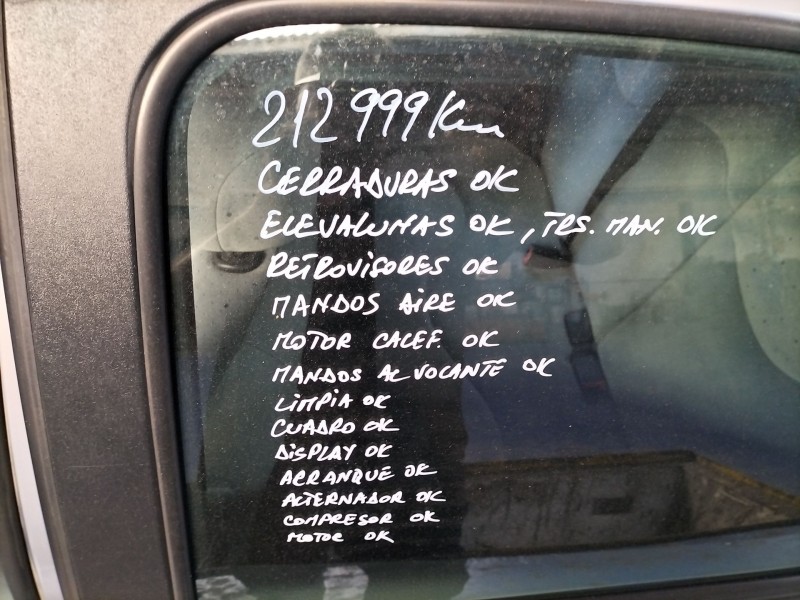 212999 Km
CERRADURAS OK
ELEVALUNAS OK, TRS. MAN. OK
RETROVISORES OK
MANDOS AIRE OK
MOTOR CALEF. OK
MANDOS AL VOLANTE OK
LIMPIA OK
CUADRO OK
DISPLAY OK
ARRANQUE OK
ALTERNADOR OK
COMPRESOR OK
MOTOR OK